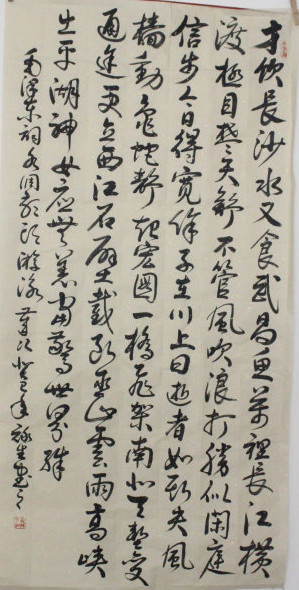 才饮長沙水又食武昌鱼萬裡長江横
渡極目楚天舒不管風吹浪打勝似閑庭
信步今日得寬馀子在川上曰逝者如斯夫風
樯動龟蛇静起宏圖一橋飛架南北天堑变
通途更立西江石壁截断巫山雲雨高峡
出平湖神女应無恙當驚世界殊
毛澤东词水调歌头游泳